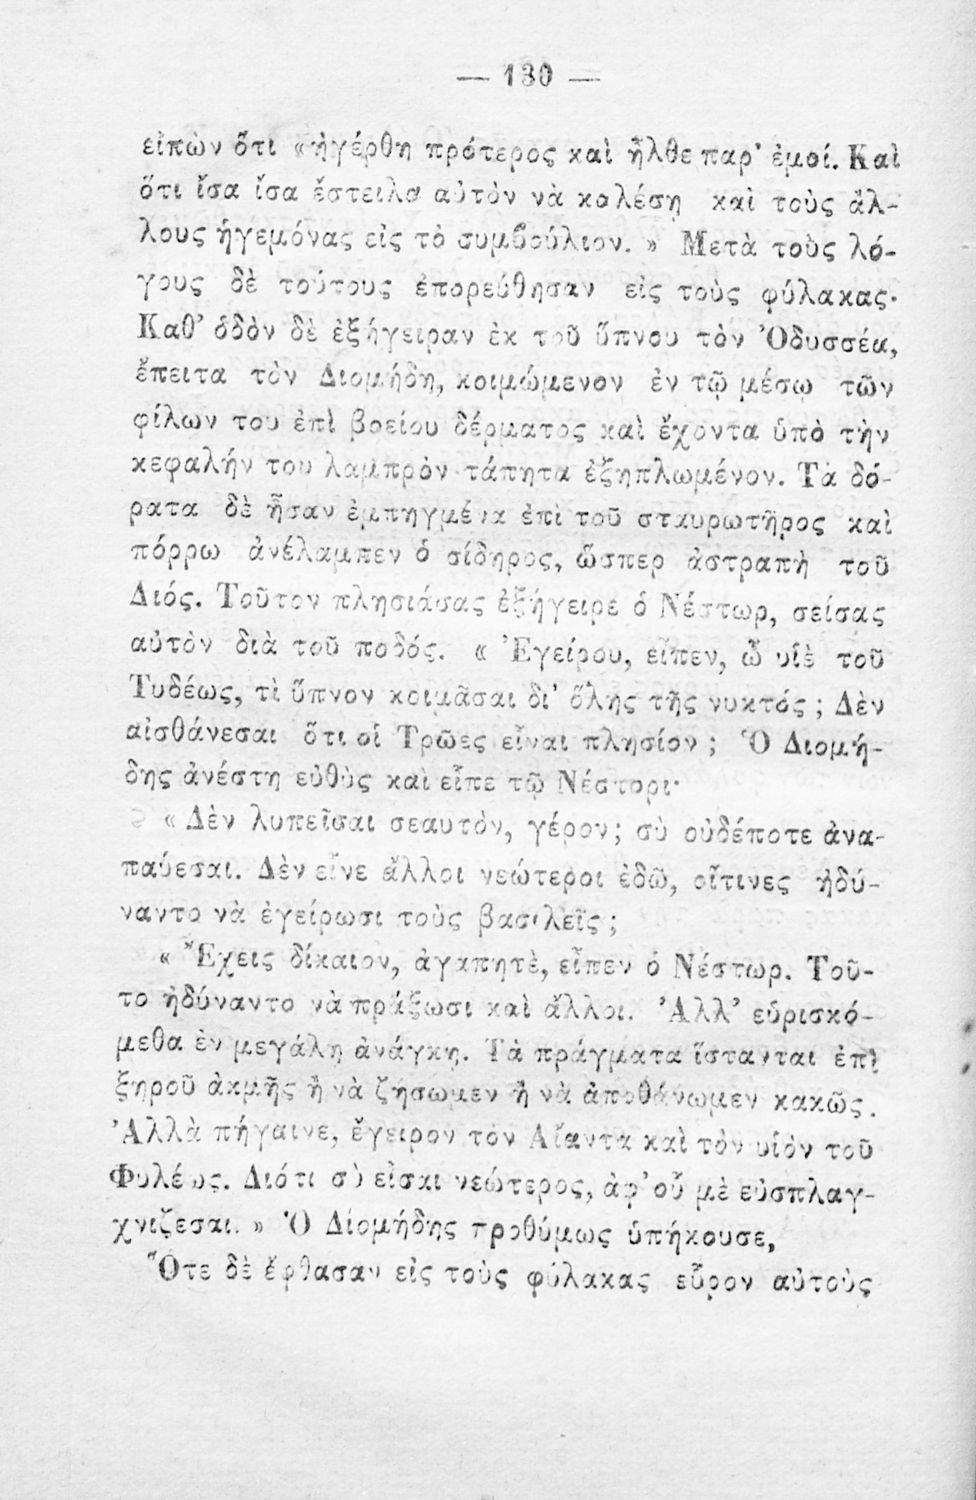 — 130 —
εἰπὼν ὅτι «ἠγέρθη πρότερος καὶ ἦλθε παρ' ἐμοί. Καὶ
ὅτι ἴσα ἴσα ἔστειλα αὐτὸν νὰ καλέσῃ καὶ τοὺς ἄλ-
λους ἡγεμόνας εἰς τὸ συμβούλιον. » Μετὰ τοὺς λό-
γους δὲ τούτους ἐπορεύθησαν εἰς τοὺς φύλακας·
Καθ' ὁδὸν δὲ ἐξήγειραν ἐκ τοῦ ὕπνου τὸν Ὀδυσσέα,
ἔπειτα τὸν Διομήδη, κοιμώμενον ἐν τῷ μέσῳ τῶν
φίλων του ἐπὶ βοείου δέρματος καὶ ἔχοντα ὑπὸ τὴν
κεφαλήν του λαμπρὸν τάπητα ἐξηπλωμένον. Τὰ δό-
ρατα δὲ ἦσαν ἐμπηγμένα ἐπὶ τοῦ σταυρωτῆρος καὶ
πόρρω ἀνέλαμπεν ὁ σίδηρος, ὥσπερ ἀστραπὴ τοῦ
Διός. Τοῦτον πλησιάσας ἐξήγειρε ὁ Νέστωρ, σείσας
αὐτὸν διὰ τοῦ ποδός. « Ἐγείρου, εἶπεν, ὦ υἱὲ τοῦ
Τυδέως, τὶ ὕπνον κοιμᾶσαι δι' ὅλης τῆς νυκτός ; Δὲν
αἰσθάνεσαι ὅτι οἱ Τρῶες εἶναι πλησίον ; Ὁ Διομή-
δης ἀνέστη εὐθὺς καὶ εἶπε τῷ Νέστορι·
« Δὲν λυπεῖσαι σεαυτόν, γέρον; σὺ οὐδέποτε ἀνα-
παύεσαι. Δὲν εἶνε ἄλλοι νεώτεροι ἐδῶ, οἵτινες ἠδύ-
ναντο νὰ ἐγείρωσι τοὺς βασιλεῖς ;
« Ἔχεις δίκαιον, ἀγαπητὲ, εἶπεν ὁ Νέστωρ. Τοῦ-
το ἠδύναντο νὰ πράξωσι καὶ ἄλλοι. Ἀλλ' εὑρισκό-
μεθα ἐν μεγάλῃ ἀνάγκῃ. Τὰ πράγματα ἵστανται ἐπὶ
ξηροῦ ἀκμῆς ἢ νὰ ζήσωμεν ἢ νὰ ἀποθάνωμεν κακῶς.
Ἀλλὰ πήγαινε, ἔγειρον τὸν Αἴαντα καὶ τὸν υἱὸν τοῦ
Φυλέως. Διότι σὺ εἶσαι νεώτερος, ἀφ' οὗ μὲ εὐσπλαγ-
χνιζεσαι. » Ὁ Δίομήδης προθύμως ὑπήκουσε,
Ὅτε δὲ ἔφθασαν εἰς τοὺς φύλακας εὗρον αὐτοὺς